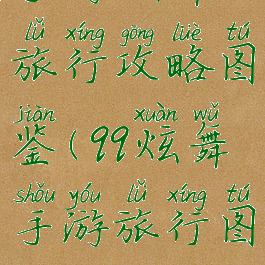 lǚ xíng gōng lüè tú
旅行攻略图
jiàn xuàn wǔ
鉴(99炫舞
shǒu yóu lǚ xíng tú
手游旅行图